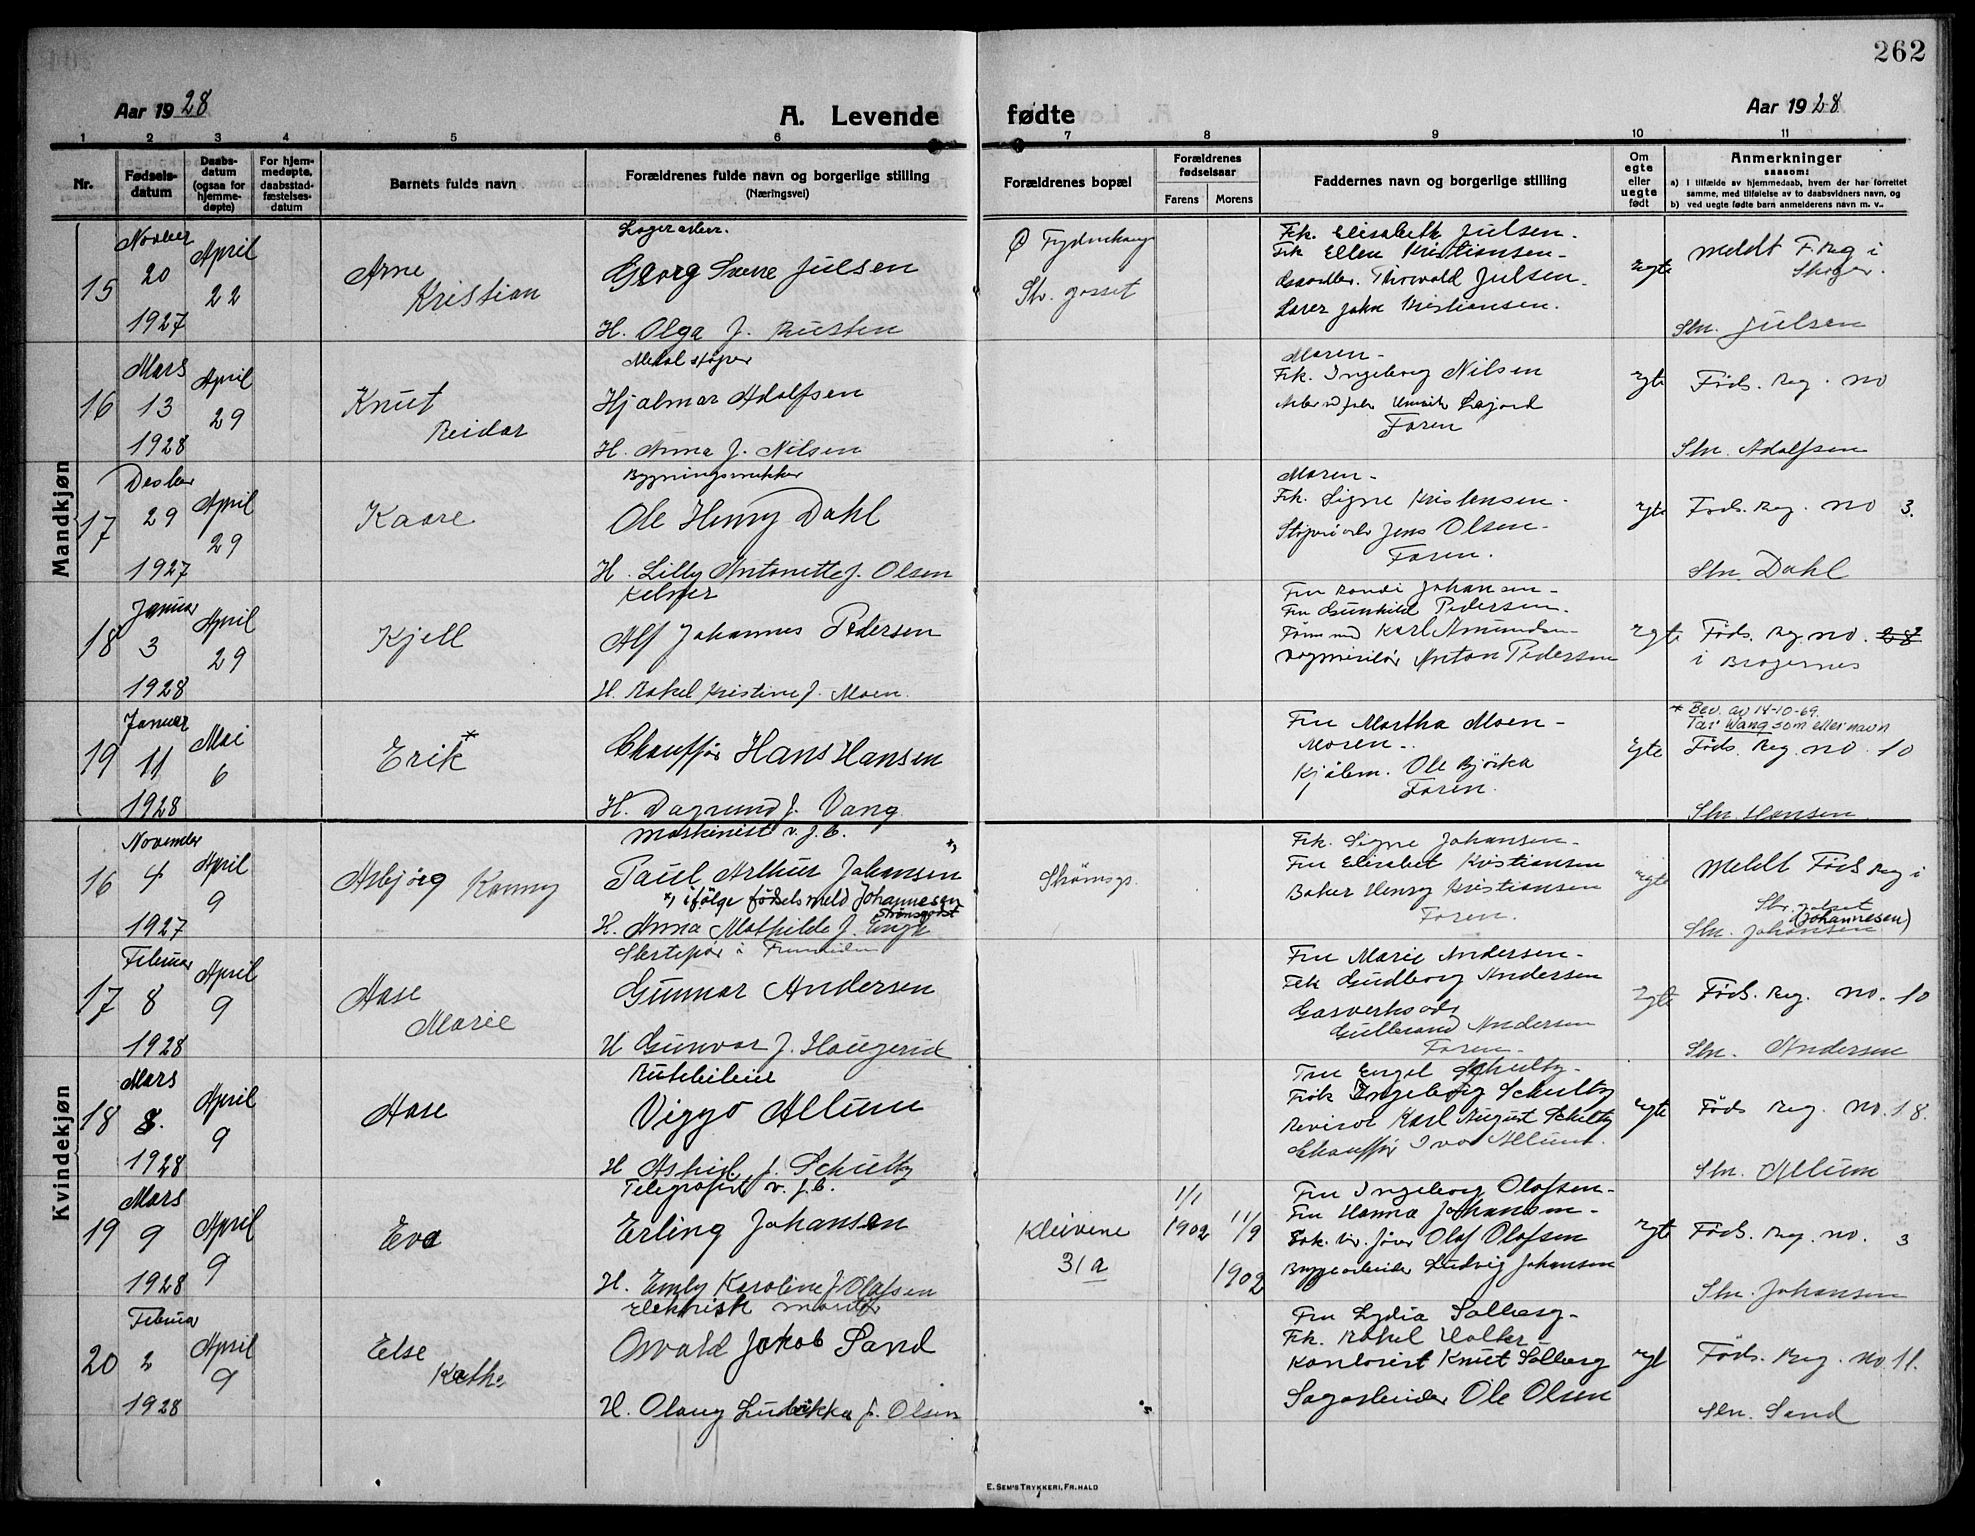 262
Aar 1928
A. Levende fødte
Aar 1928
1 2 3 4 5 6 7 8 9 10 11
Nr.
Fødselsdatum
Daabsdatum (ogsaa for hjemmedøpte)
For hjemmedøpte, daabsstadfæstelsesdatum
Barnets fulde navn
Forældrenes fulde navn og borgerlige stilling
(Næringsvei)
Forældrenes bopæl
Forældrenes fødselsaar
Farens Morens
Faddernes navn og borgerlige stilling
Om egte eller uegte født
Anmerkninger
saasom:
a) I tilfælde av hjemmedaab, hvem der har forrettet
samme, med tilføielse av to daabsvidners navn, og
b) ved uegte fødte barn anmelderens navn m. v..
Mandkjøn
15
20
1927
April
22
Arne
Kristian
Georg Sverre Julsen
H. Olga f. Rusten
St. gosset
Frk. Elisabeth Julsen -
Frk Ellen Kristiansen -
Thorvald Julsen
John Kristiansen.
egte
Meldt F. Reg i
Skoger.
Sln. Julsen
16
Mars
13
1928
April
29
Knut
Reidar
Metalstøper
Hjalmar Adolfsen
H. Anna f. Nilsen
Moren -
Frk. Ingeborg Nilsen
Faren
egte
Føds. Reg. no
Sln. Adolfsen
17
Desber
29
1927
April
29
Kaare
Bygningssnekker
Ole Henry Dahl
H. Lilly Antonette f. Olsen
Moren -
Frk. Signe Kristensen -
Jens Olsen -
Faren.
egte
Føds. Reg. no 3.
Sln. Dahl
18
Januar
3
1928
April
29
Kjell
Kelner
Alf Johannes Pedersen
H. Rakel Kristine f. Moen.
Fru Randi Johansen -
Fru Gunhild Pedersen -
Karl Amundsen -
Anton Pedersen
egte
Føds. Reg. no. 28
i Bragernes
19
Januar
11
1928
Mai
6
Erik*
Chauffør Hans Hansen
H. Dagrund f. Vang
Fru Martha Moen -
Moren -
Ole Bjørka
Faren.
egte
* Bev. av 14-10-69.
Tar Wang som etternavn
Føds. Reg. no. 10
Sln. Hansen
Kvindekjøn
16
November
4
1927
April
9
Asbjørg Konny
Maskinist v. J.B.
Paul Arthur Johansen *)
*) ifølge fødselsmeld Johannesen
Strømsgodset
H. Anna Mathilde f. Engh
Strømsgs.
Frk. Signe Johansen -
Fru Elisabet Kristiansen
Baker Henry Kristiansen
Faren.
egte
Meldt Føds Reg i
Str. gosset
(Johannesen)
Sln. Johansen
17
Februar
8
1928
April
9
Aase
Marie
Gunnar Andersen
H Gunvor f. Haugerud
Fru Marie Andersen -
Frk Gudborg Andersen
Gasverksarb
Gulbrand Andersen
Faren -
egte
Føds. Reg. no. 10
Sln. Andersen
18
Mars
8.
1928
April
9
Aase
Rutebileier
Viggo Allum
H Astrid f. Schulty
Fru Engel Schulty -
Frøk Ingeborg Schulty
Revisor Karl August Schulty
Chauffør Ivar Allum.
egte
Føds Reg. no. 18.
Sln. Allum
19
Mars
9
1928
April
9
Eva
Telegrafist v. J.B.
Erling Johansen
H. Emly Karoline f. Olafsen
Kleivene
31 a
1/1
1902
11/9
1902
Fru Ingeborg Olafsen -
Fru Hanna Johansen -
Olaf Olafsen
Byggearbeider Ludvig Johansen
egte
Føds. Reg. no. 3
Sln. Johansen
20
Februar
2
1928
April
9
Else
Kathe
Elektrisk montør
Osvald Jakob Sand
H. Olaug Ludvikka f. Olsen
Fru Lydia Solberg -
Frk. Rakel Holter -
Kontorist Knut Solberg
Sagarbeider Ole Olsen
egt
Føds. Reg. no. 11.
Sln. Sand
E. SEM'S TRYKKERI, FR.HALD